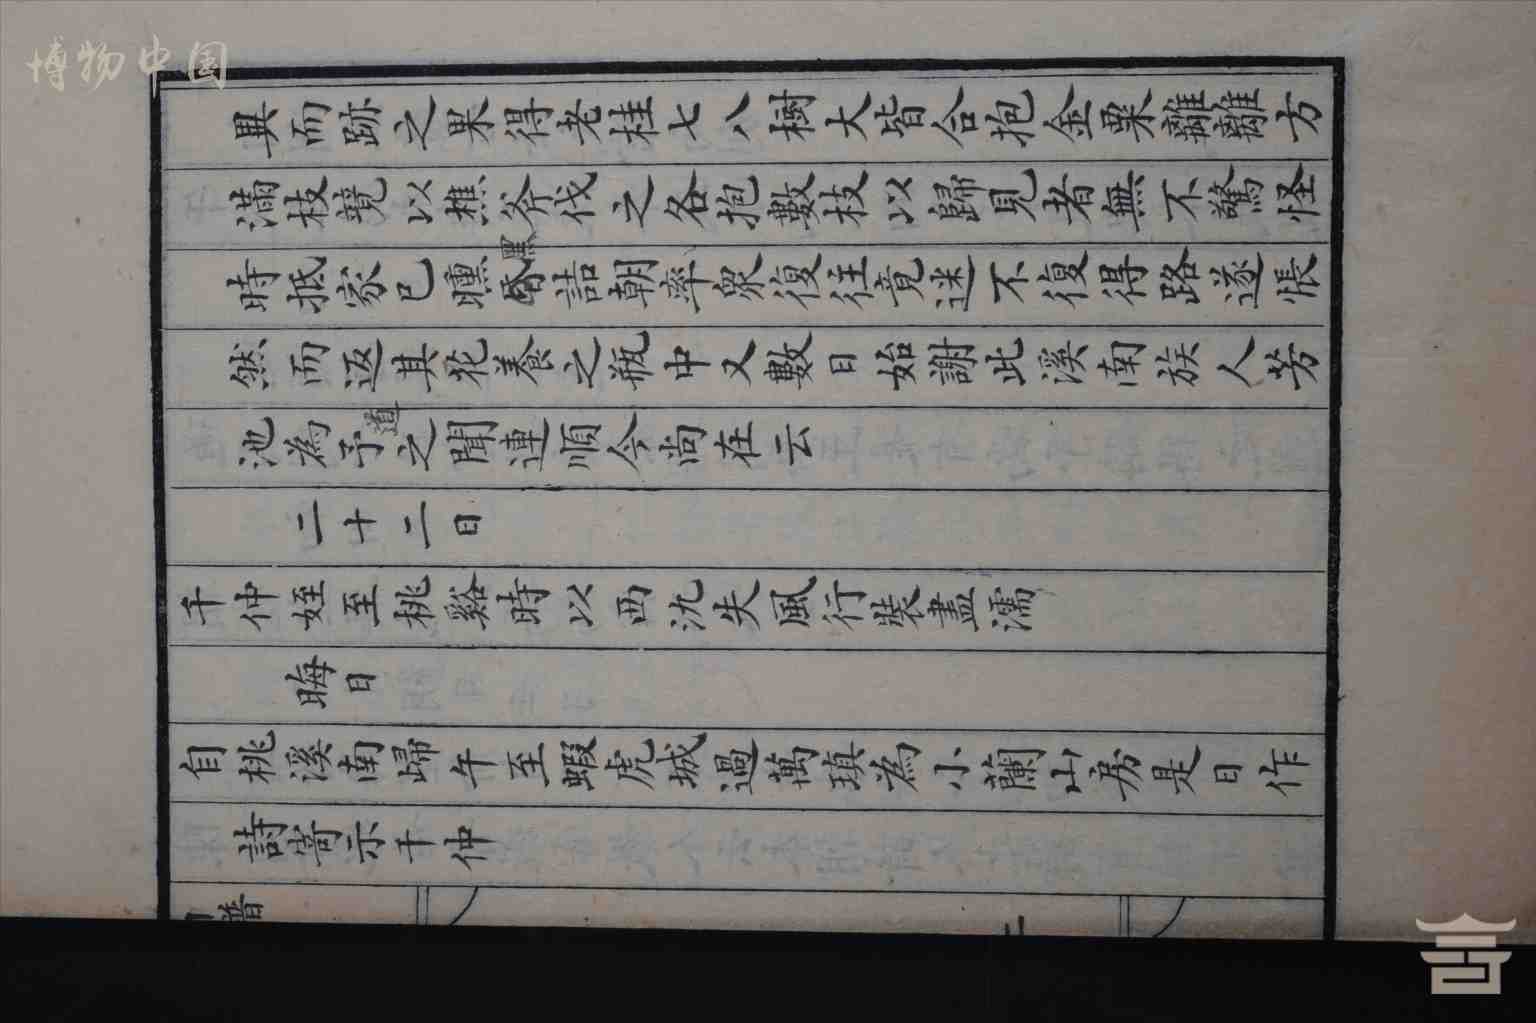 博物中国
異而跡之果得老桂七八樹大皆合抱金粟離離方
滿枝競以樵斧伐之各抱數枝以歸見者無不驚怪
時抵家已曛黑詰朝率眾復往竟迷不復得路遂悵
然而返其花養之瓶中又數日始謝此溪南族人芳
池為予道之聞連順今尚在云
二十二日
千仲姪至桃谿時以西氿失風行裝盡濡
晦日
自桃溪南歸午至蝦虎城過萬瑱為小蘭山房是日作
詩寄示千仲
譜